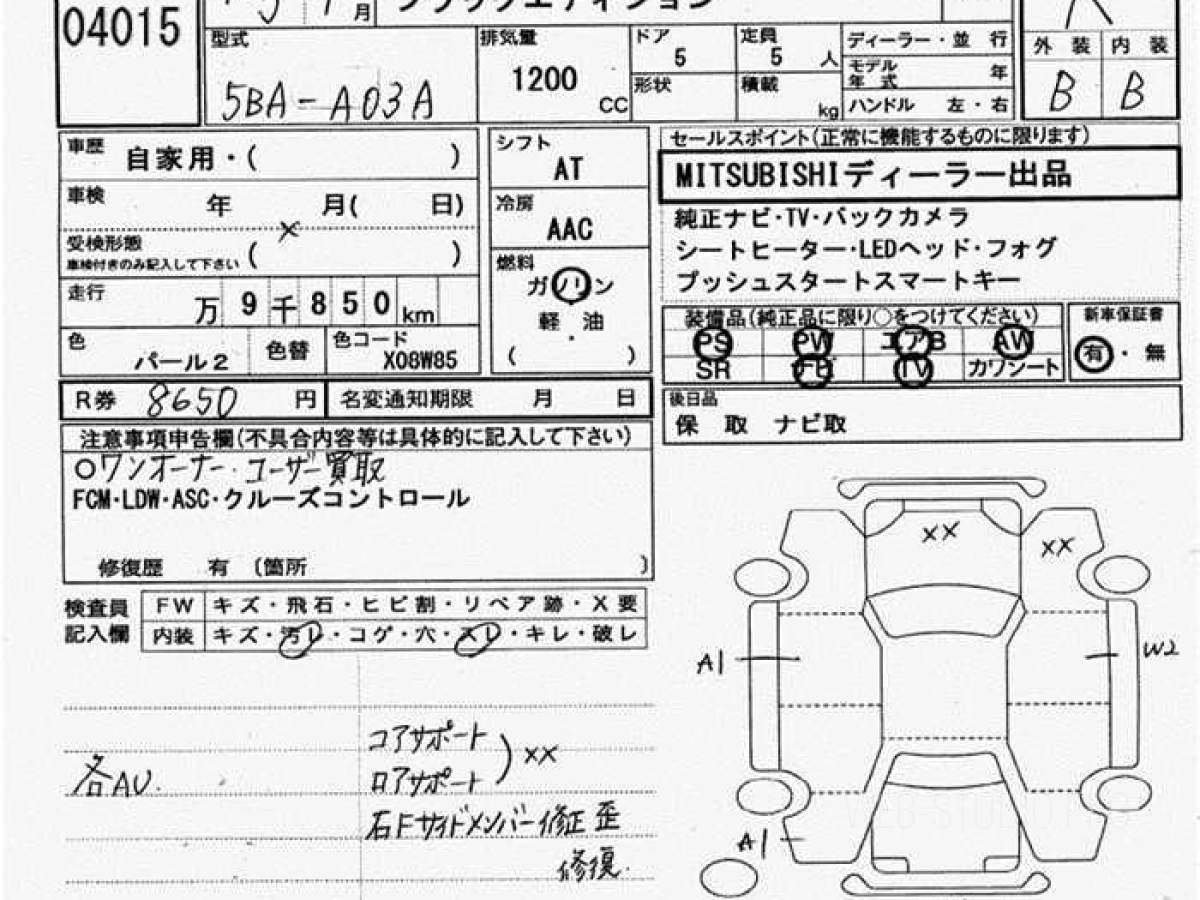 04015
月
ブラックエディション
R
型式
5BA-A03A
排気量
1200
CC
ドア
5
定員
5 人
形状
積載
kg
ディーラー・並 行
モデル
年 式
年
ハンドル 左・右
外 装 内 装
B B
車歴
自家用・( )
車検
年 月( 日)
受検形態
車検付きのみ記入して下さい
( × )
走行
万 9 千 8 5 0 km
色
パール2
色替
色コード
X08W85
シフト
AT
冷房
AAC
燃料
ガソリン
軽 ・ 油
( )
セールスポイント(正常に機能するものに限ります)
MITSUBISHIディーラー出品
純正ナビ・TV・バックカメラ
シートヒーター・LEDヘッド・フォグ
プッシュスタートスマートキー
装備品(純正品に限り○をつけてください)
PS PW エアB AW
SR ナビ TV カワシート
新車保証書
有・無
R券 8650 円
名変通知期限 月 日
後日品
保 取 ナビ取
注意事項申告欄(不具合内容等は具体的に記入して下さい)
○ワンオーナー・ユーザー買取
FCM・LDW・ASC・クルーズコントロール
修復歴 有 〔箇所 〕
検査員
記入欄
FW キズ・飛石・ヒビ割・リペア跡・X要
内装 キズ・汚レ・コゲ・穴・スレ・キレ・破レ
各AU.
コアサポート
ロアサポート
) ××
右Fサイドメンバー修正 歪
修復.
××
××
A1
W2
A1